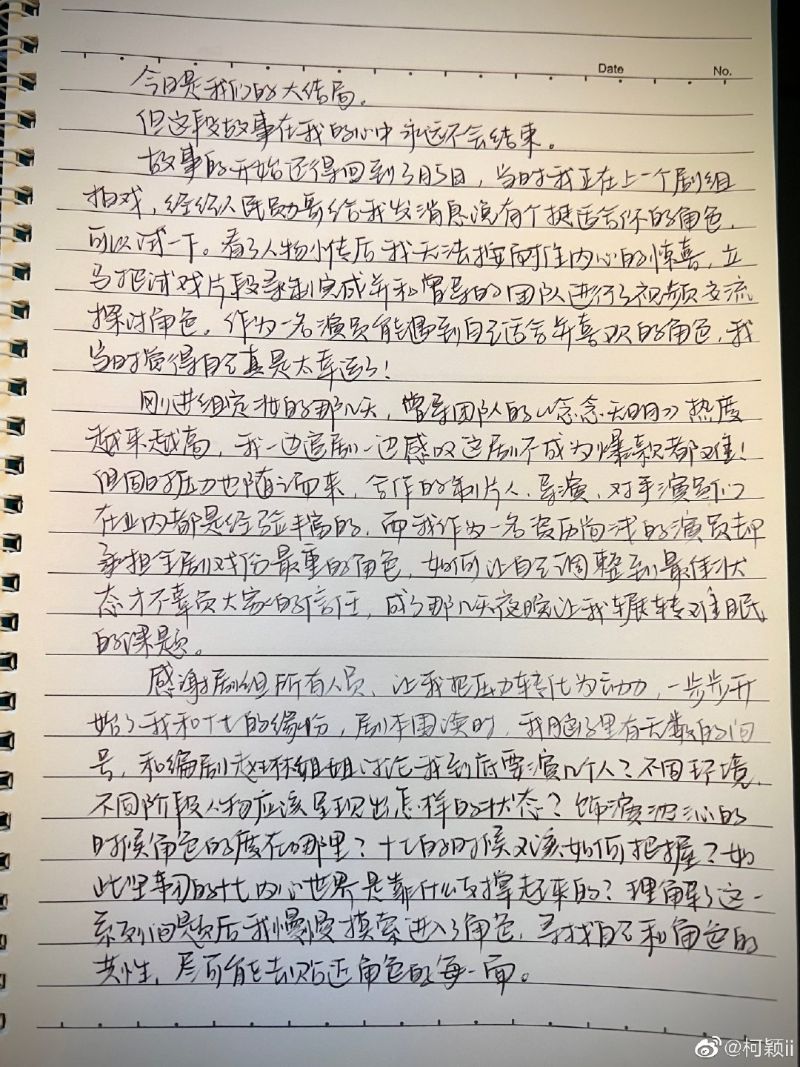 Date
No.
今日是我们的大结局。
但这段故事在我的心中永远不会结束。
故事的开始还得回到3月5日，当时我正在上一个剧组
拍戏，经纪人民勋哥给我发消息说有个挺适合你的角色，
可以试一下。看了人物小传后我无法按耐住内心的惊喜，立
马把试戏片段录制完成并和曾导的团队进行了视频交流
探讨角色。作为一名演员能遇到自己适合并喜欢的角色，我
当时觉得自己真是太幸运了！
刚进组定妆的那几天，曾导团队的《念念无明》热度
越来越高，我一边追剧一边感叹这剧不成为爆款都难！
但同时压力也随之而来，合作的制片人、导演、对手演员们
在业内都是经验丰富的，而我作为一名资历尚浅的演员却
承担全剧戏份最重的角色，如何让自己调整到最佳状
态才不辜负大家的信任，成了那几天夜晚让我辗转难眠
的课题。
感谢剧组所有人员，让我把压力转化为动力，一步步开
始了我和十七的缘份，剧本围读时，我脑子里有无数的问
号，和编剧赵琳姐姐讨论我到底要演几个人？不同环境，
不同阶段人物应该呈现出怎样的状态？饰演 沁的
时候角色的度在哪里？十七的时候又该如何把握？如
此坚韧的十七内心世界是靠什么支撑起来的？理解了这一
系列问题后我慢慢摸索进入了角色，寻找自己和角色的
共性，尽可能去贴近角色的每一面。
@柯颖ii